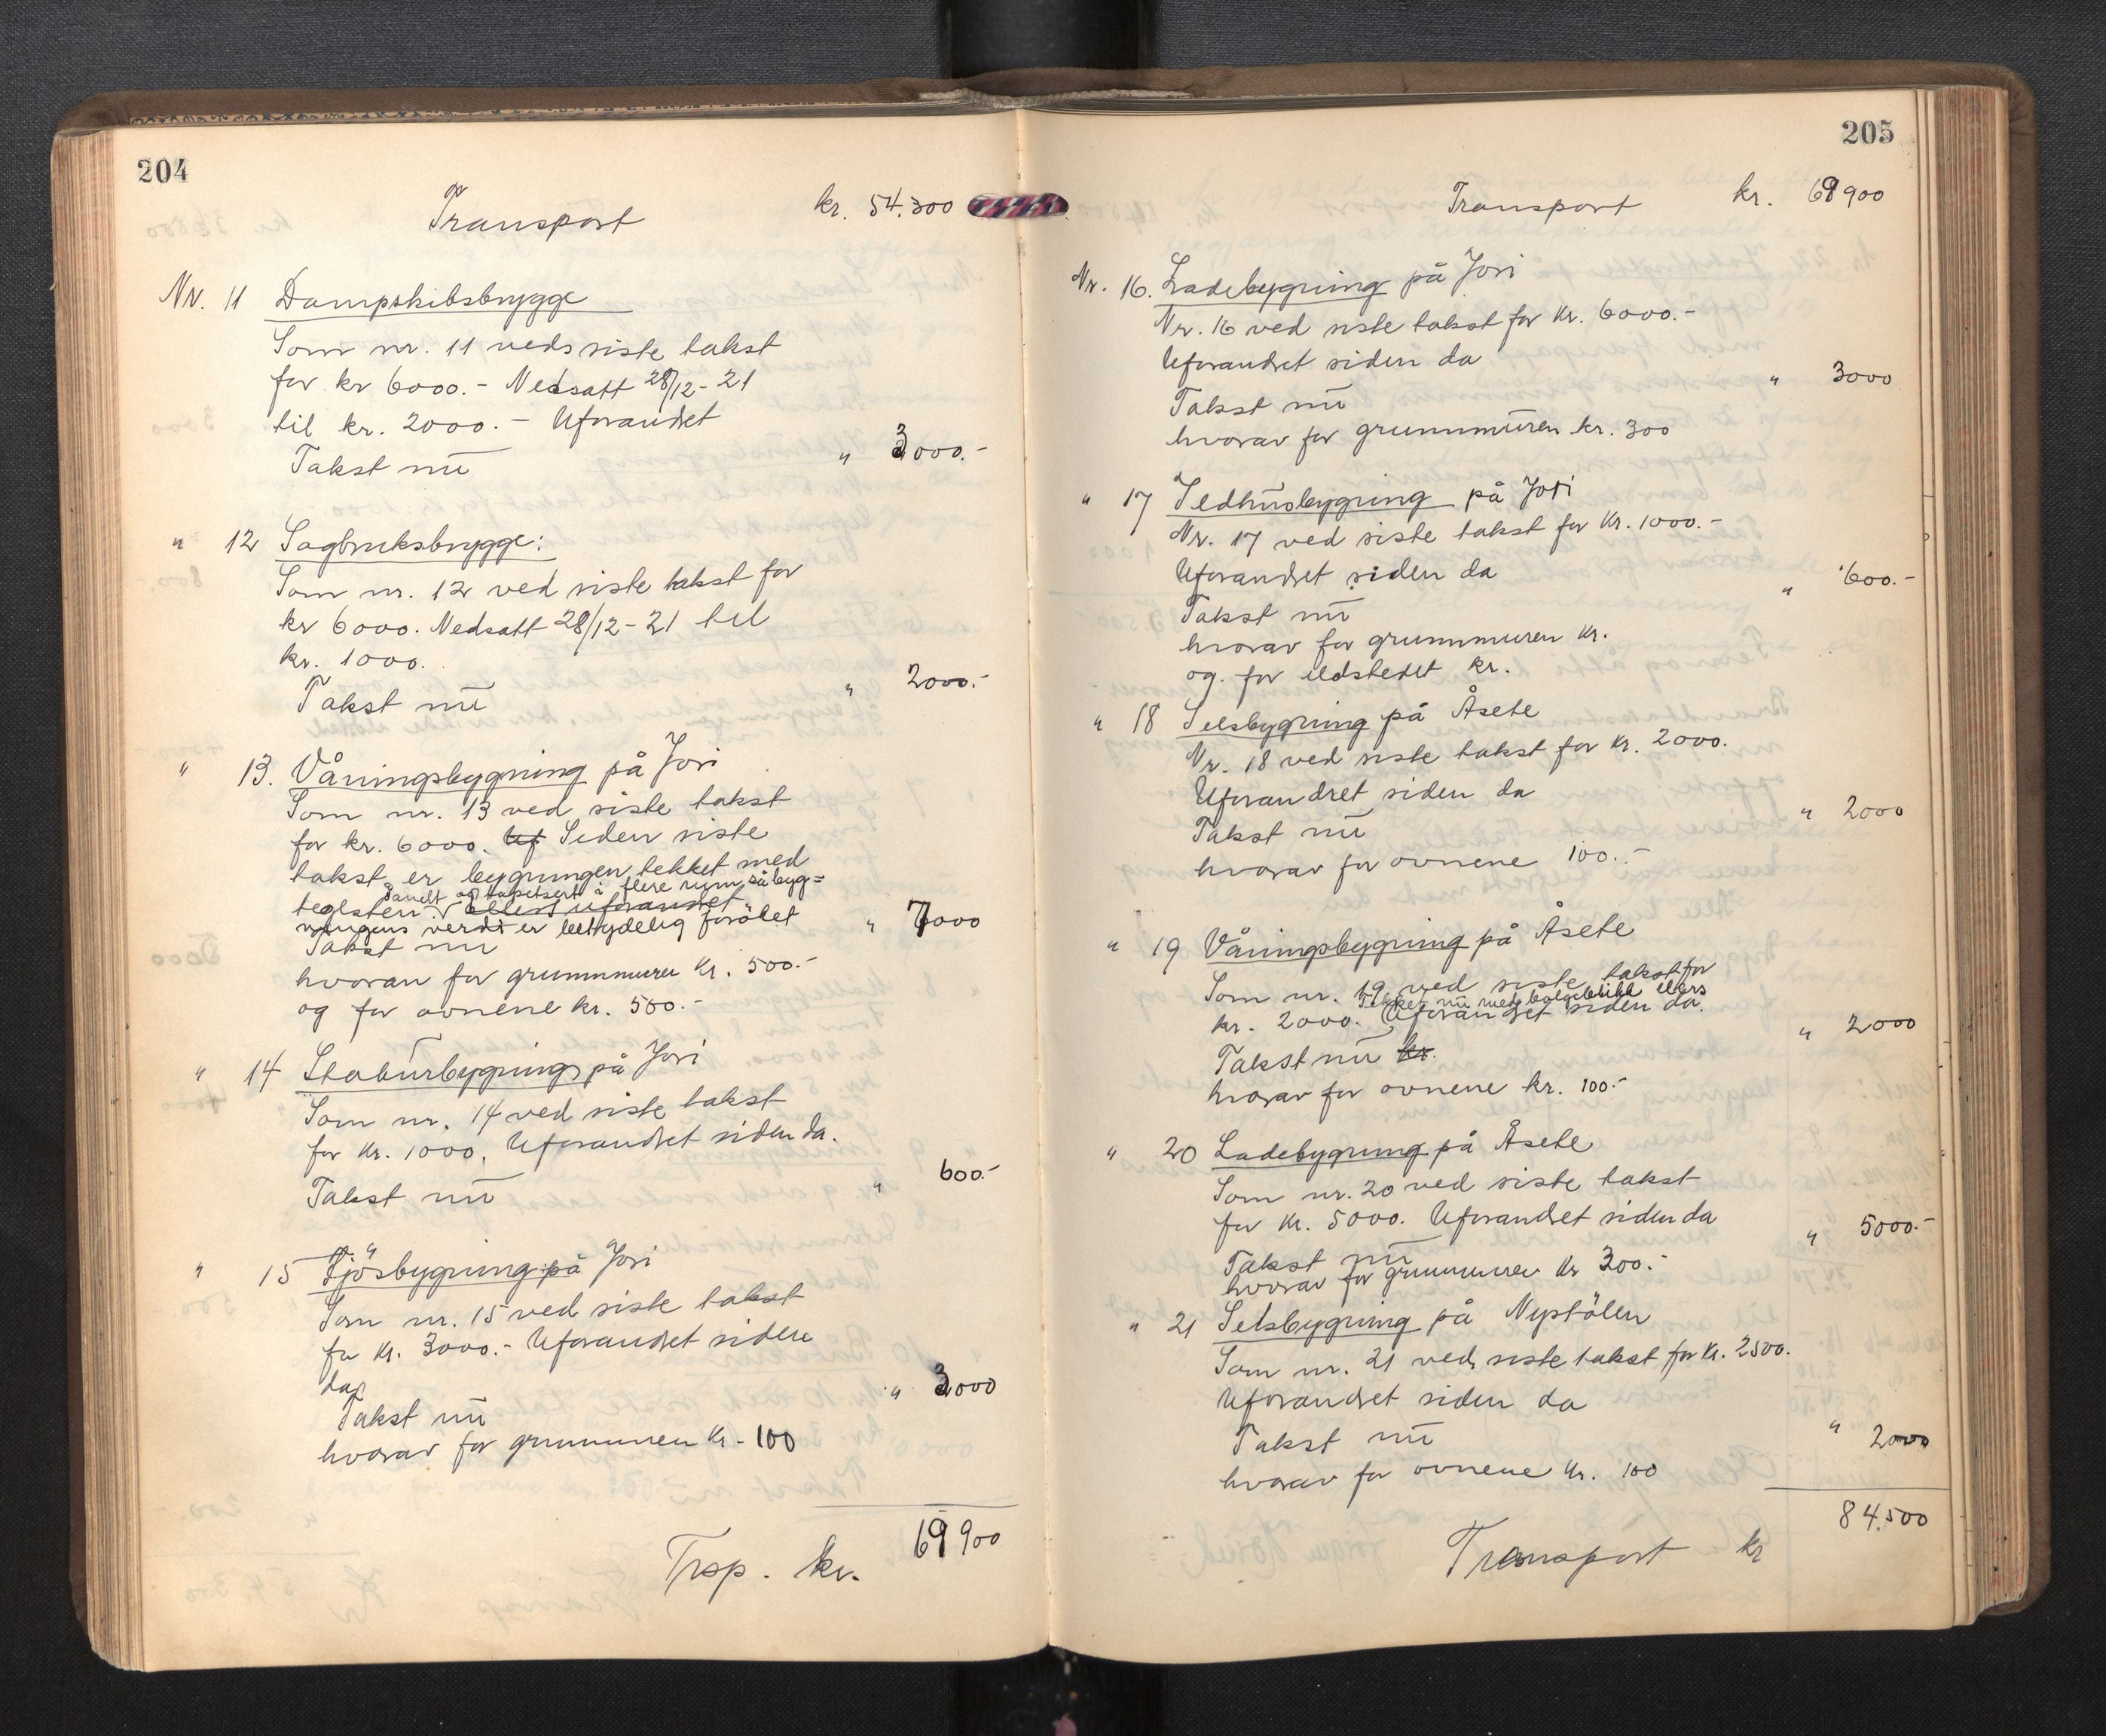 204
Transport kr. 54.300
Nr. 11 Dampskibsbrygge
Som nr. 11 ved siste takst
for kr 6000.- Nedsatt 28/12-21
til kr. 2000.- Uforandret
Takst nu " 3000.-
" 12 Sagbruksbrygge:
Som nr. 12 ved siste takst for
kr 6000. Nedsatt 28/12-21 til
kr. 1000.
Takst nu " 2000.-
" 13. Våningsbygning på Jori
Som nr. 13 ved siste takst
for kr. 6000. Uf Siden siste
takst er bygningen tekket med
panelt og tapetsert i flere rum så byg=
teglsten. Ellers uforandret
ningens verdi er betydelig foröket " 7000
Takst nu
hvorav for grunnmuren kr. 500.-
og for ovnene kr. 500.-
" 14 Staburbygning på Jori
Som nr. 14 ved siste takst
for kr. 1000. Uforandret siden da.
Takst nu " 600.-
" 15 Fjösbygning på Jori
Som nr. 15 ved siste takst
for kr. 3000.- Uforandret siden
da
Takst nu " 3000
hvorav for grunnmuren kr. 100
Trsp. kr. 69900
205
Transport kr. 69900
Nr. 16. Ladebygning på Jori
Nr. 16 ved siste takst for kr. 6000.-
Uforandret siden da
Takst nu " 3000
hvorav for grunnmuren kr. 300
" 17 Ildhusbygning på Jori
Nr. 17 ved siste takst for kr. 1000.-
Uforandret siden da
Takst nu " 600.-
hvorav for grunnmuren kr.
og for ildstedet kr.
" 18 Selsbygning på Åsete
Nr. 18 ved siste takst for kr. 2000.
Uforandret siden da
Takst nu " 2000
hvorav for ovnene 100.-
" 19 Våningsbygning på Åsete
Som nr. 19 ved siste takst for
Tekket nu med bølgeblikk ellers
kr. 2000. Uforandret siden da.
Takst nu kr. " 2000
hvorav for ovnene kr. 100.-
" 20 Ladebygning på Åsete
Som nr. 20 ved siste takst
for kr. 5000. Uforandret siden da
Takst nu " 5000.-
hvorav for grunnmuren kr 300.-
" 21 Selsbygning på Nystölen
Som nr. 21 ved siste takst for kr. 2500.
Uforandret siden da
Takst nu " 2000
hvorav for ovnene kr. 100
84.500
Transport kr